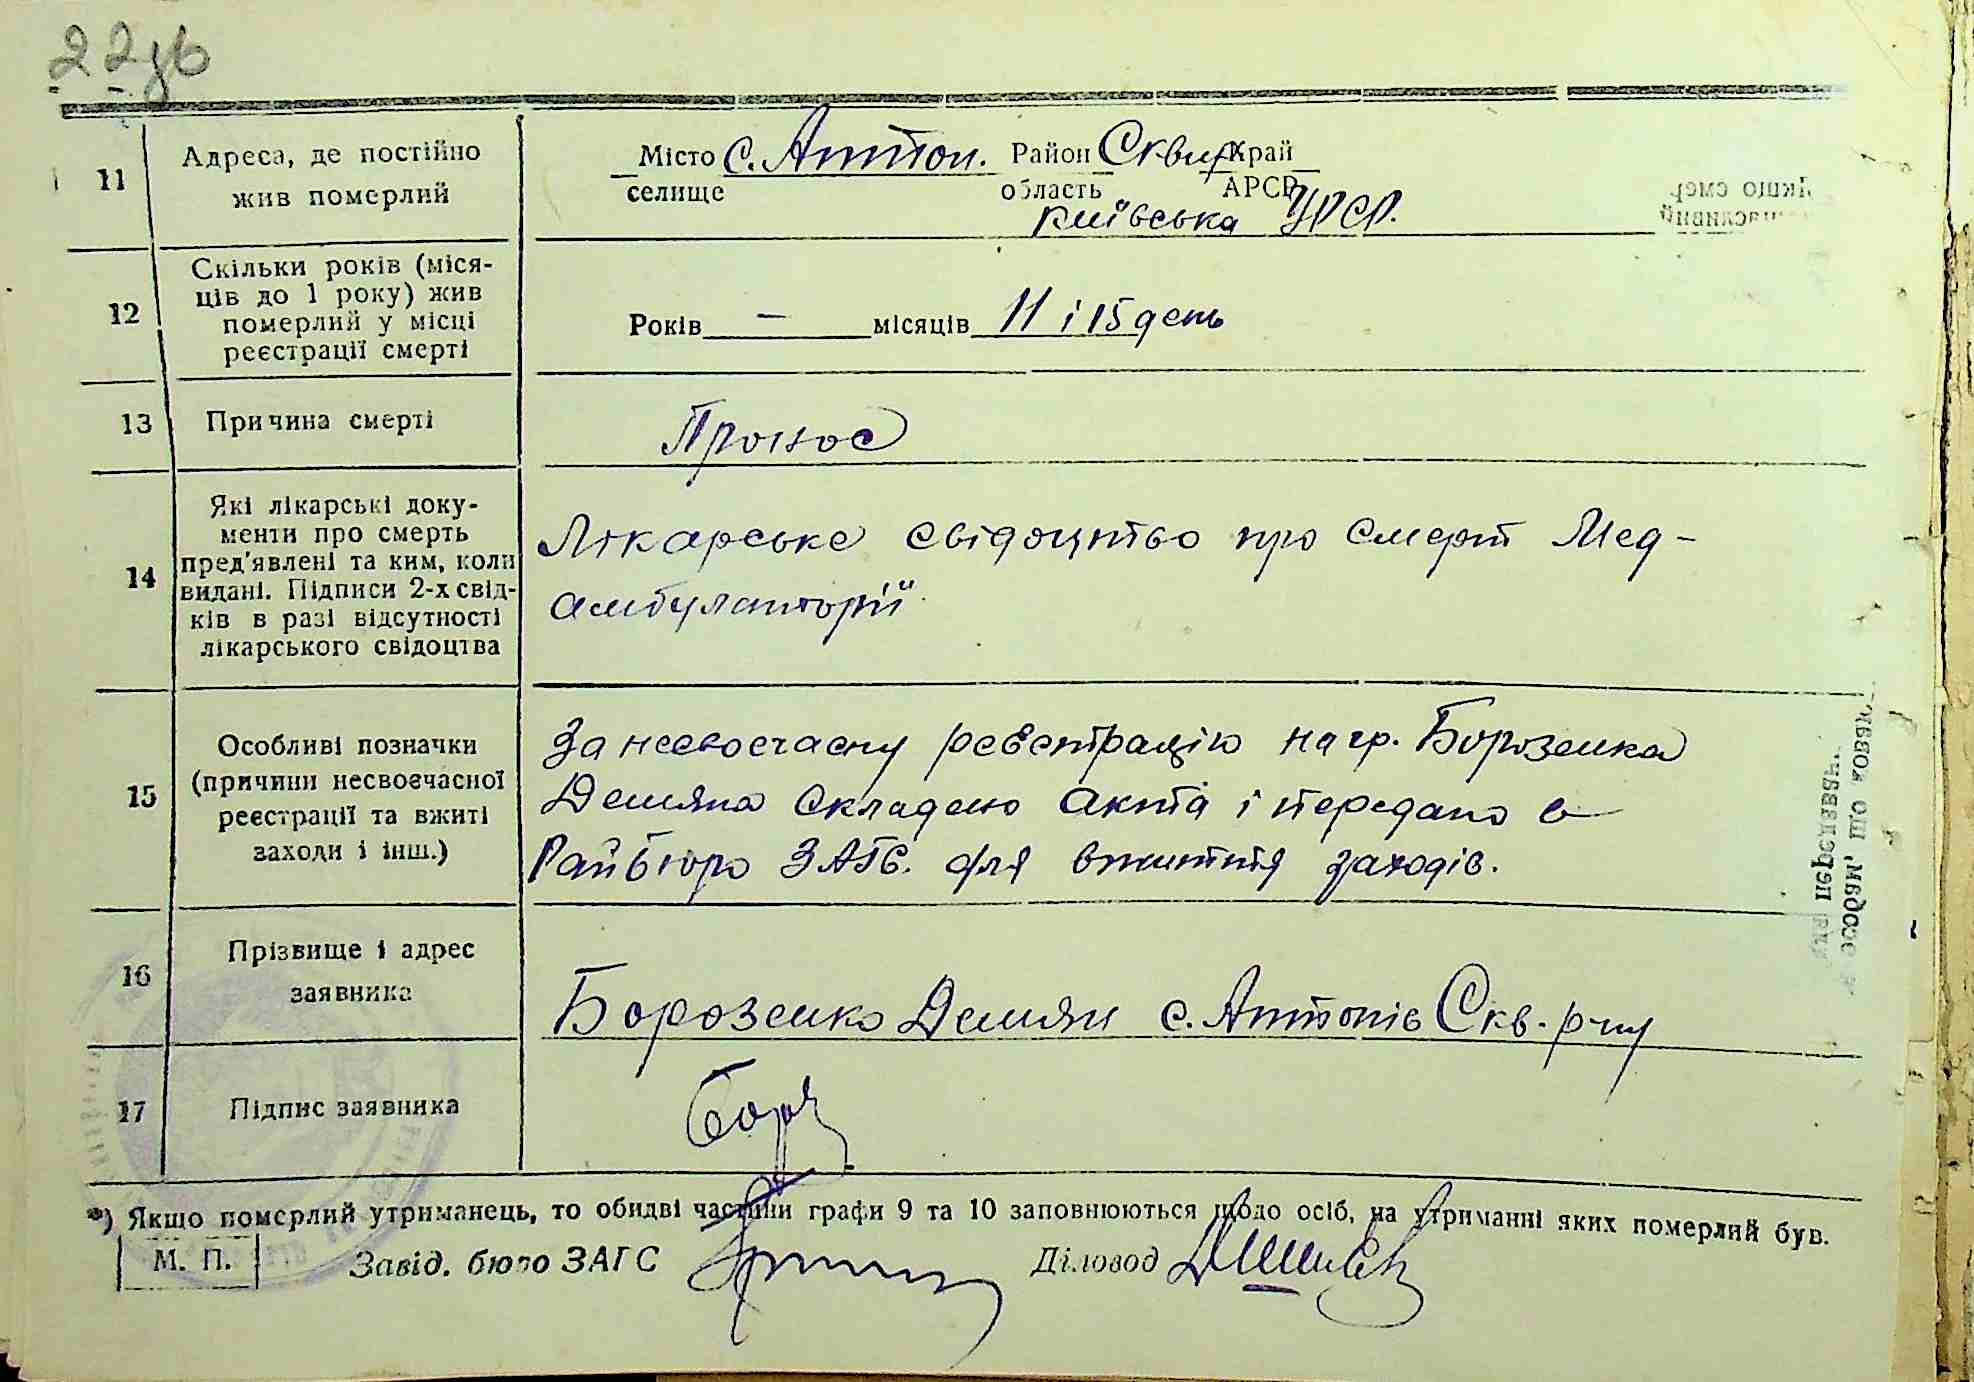 22зв
11
Адреса, де постійно
жив померлий
Місто с. Антон. Район Сквир Край
селище область АРСР
Київська УРСР.
12
Скільки років (міся-
ців до 1 року) жив
померлий у місці
реєстрації смерті
Років — місяців 11 і 15 день
13
Причина смерті
Пронос
14
Які лікарські доку-
менти про смерть
пред'явлені та ким, коли
видані. Підписи 2-х свід-
ків в разі відсутності
лікарського свідоцтва
Лікарське свідоцтво про смерт Мед-
амбулаторії
15
Особливі позначки
(причини несвоєчасної
реєстрації та вжиті
заходи і інш.)
За несвоєчасну реєстрацію на гр. Борозенка
Демяна складено акта і передано в
Райбюро ЗАГС. для вжиття заходів.
16
Прізвище і адрес
заявника
Борозенко Демян с. Антонів Скв. р-ну
17
Підпис заявника
Бор
*) Якщо померлий утриманець, то обидві частини графи 9 та 10 заповнюються щодо осіб, на утриманні яких померлий був.
М. П. Завід. бюро ЗАГС Діловод